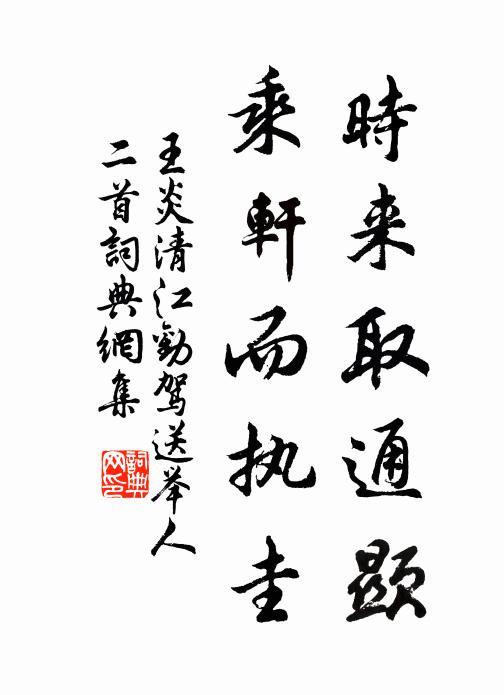 時来取通顯
乘軒而执圭
王炎清江勸駕送举人
二首詞典網集
詞典网印